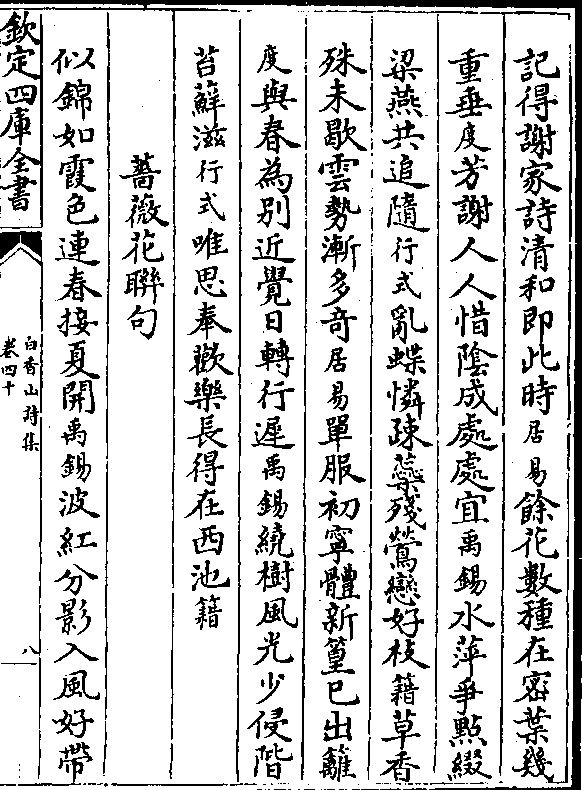 記得謝家詩清和即此時居易餘花數種在密葉幾
重垂度芳謝人人惜陰成處處宜禹錫水萍爭點綴
梁燕共追隨行式亂蝶憐疎蘂殘鶯戀好枝籍草香
殊未歇雲勢漸多奇居易單服初寧體新篁已出籬
度與春為別近覺日轉行遲禹錫繞樹風光少侵階
苔蘚滋行式唯思奉歡樂長得在西池籍
薔薇花聯句
似錦如霞色連春接夏開禹錫波紅分影入風好帶
欽定四庫全書
白香山詩集
卷四十
八